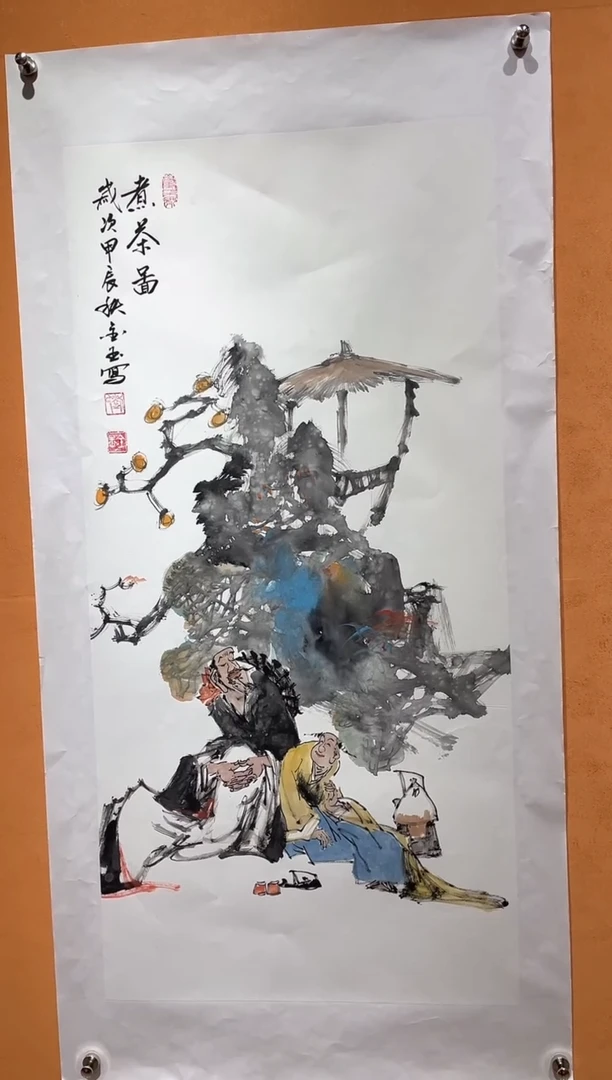 煮茶图
岁次甲辰秋金玉写